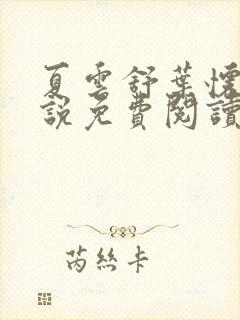 夏雲舒葉懷
說免費閱讀
芮絲卡